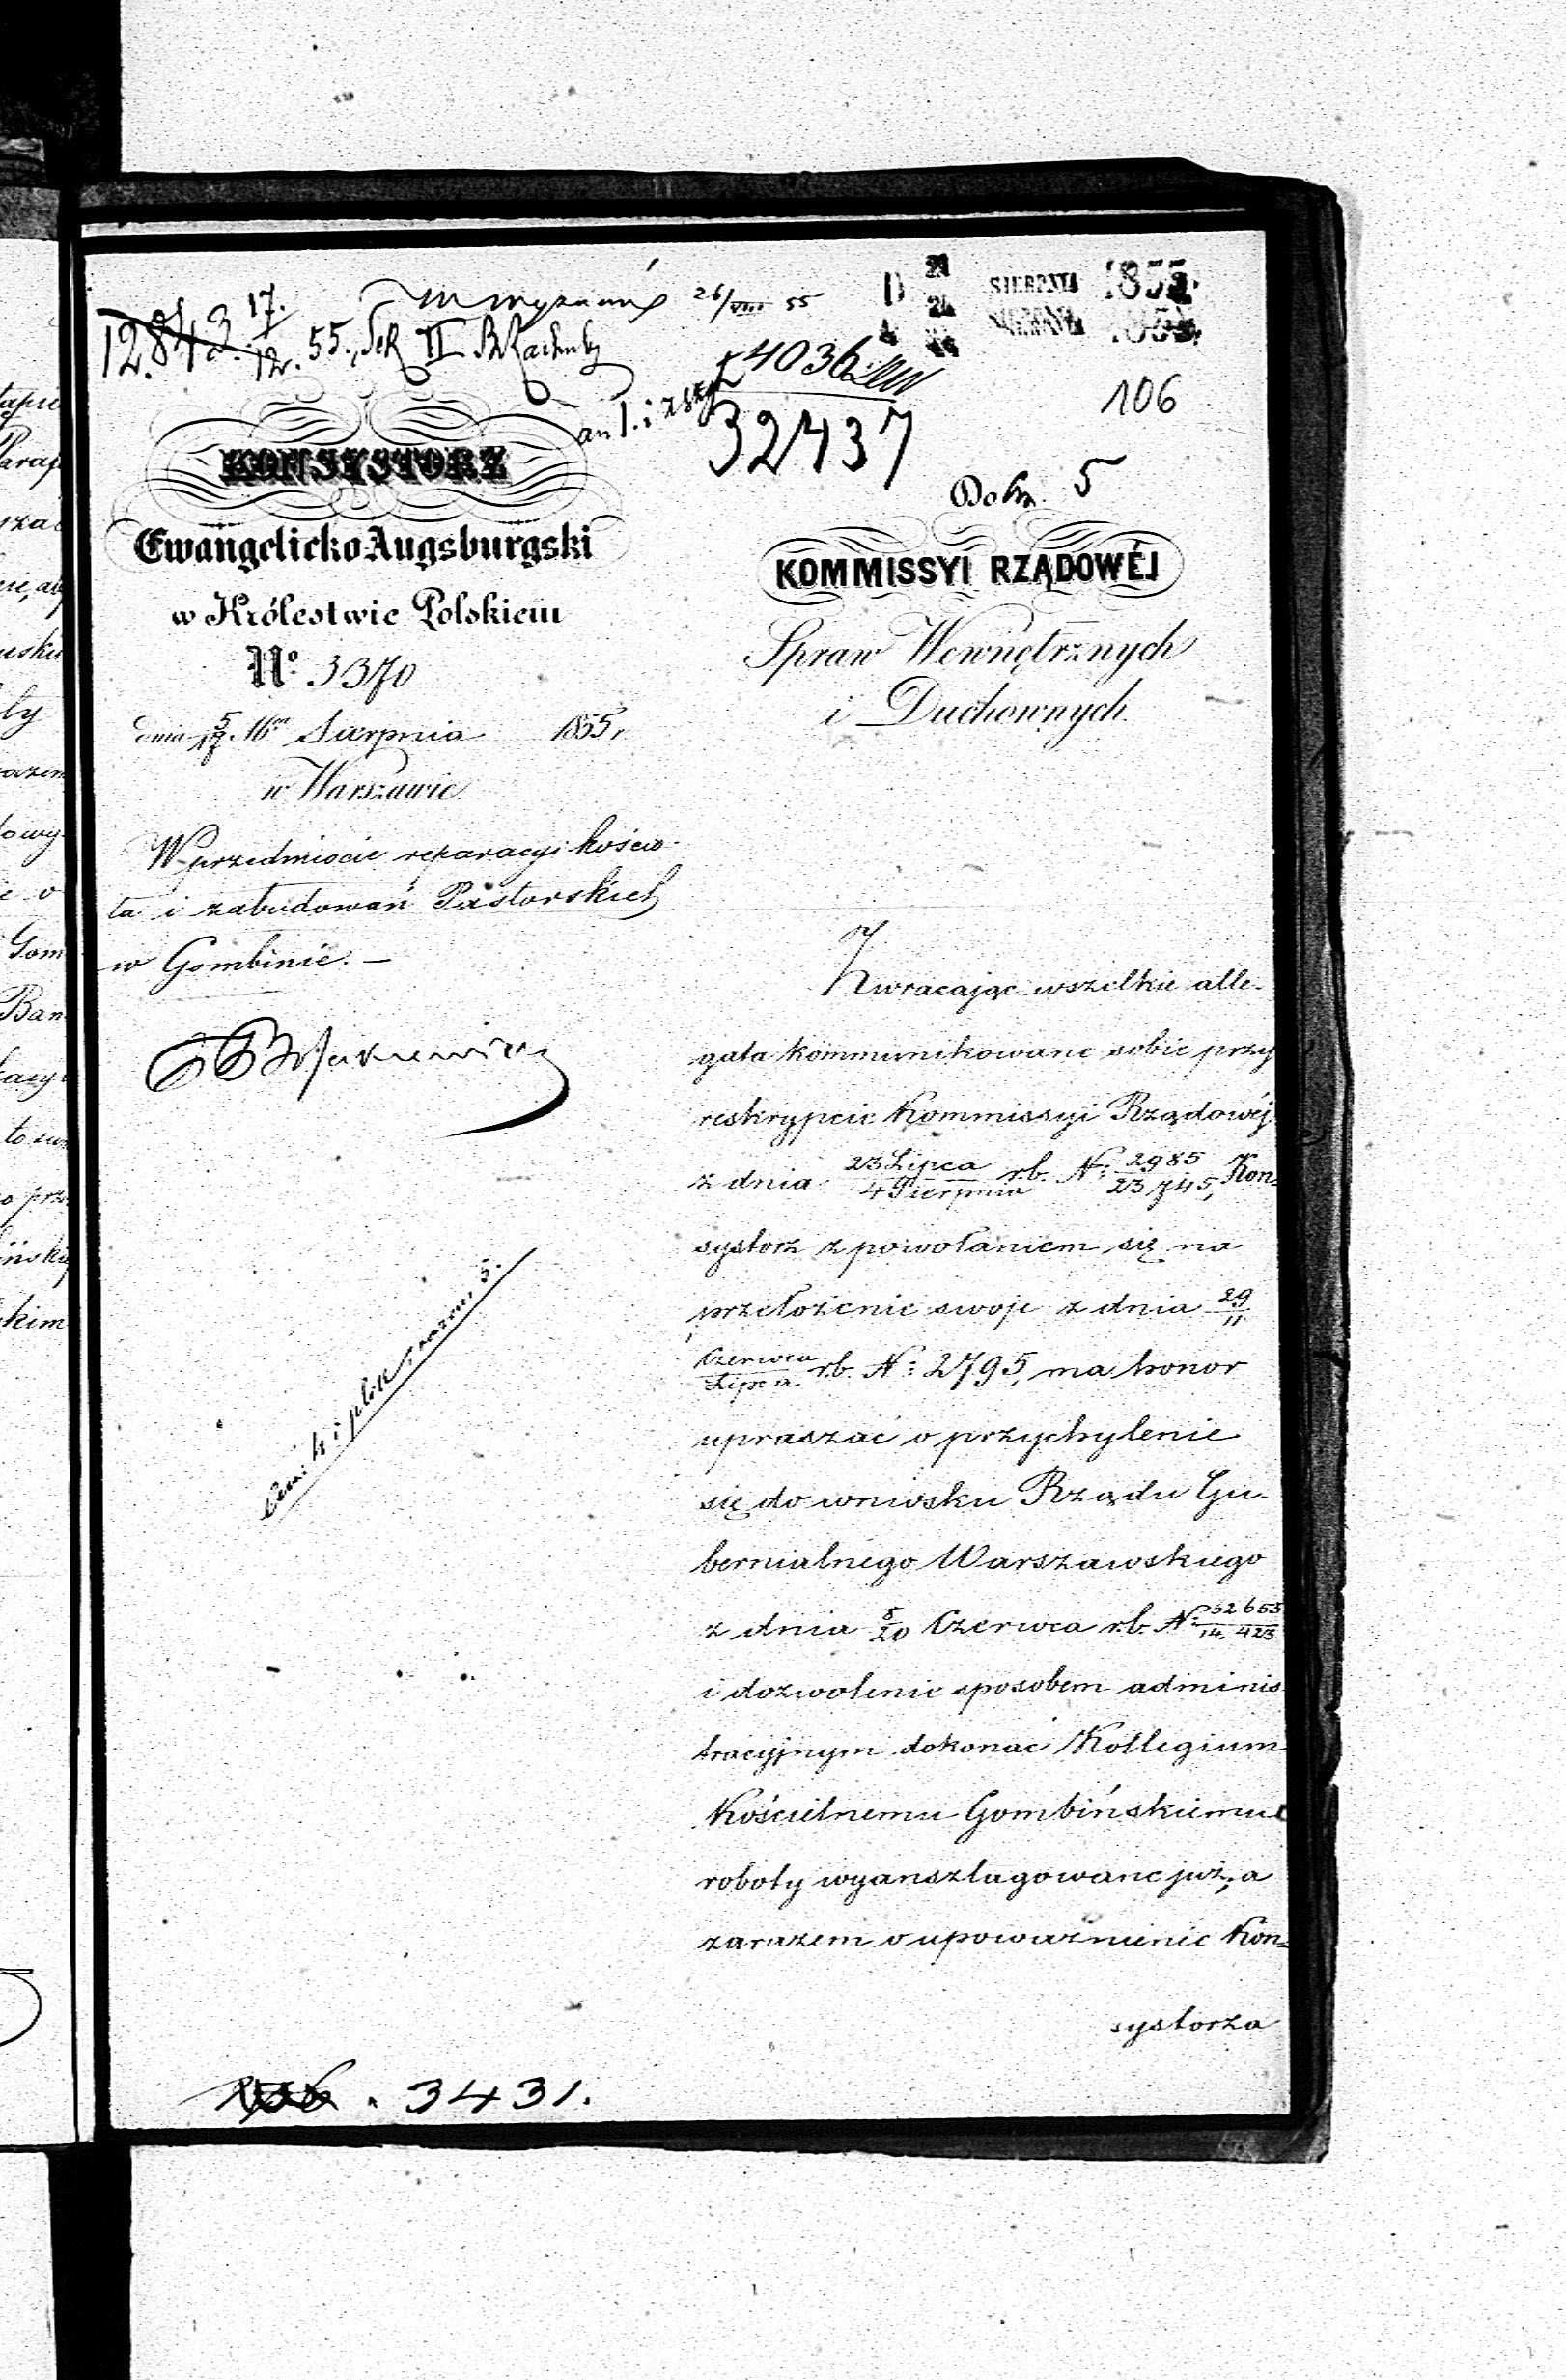 w wyznań 26/VIII 55
SIERPNIA 1855.
12.843. 17./12. 55., Sek II
4036
106
32437
5
KONSYSTORZ
Ewangelicko-Augsburgski
w Królestwie Polskiem
No 3370
dnia 5/17. 16go Sierpnia 1855r
w Warszawie.
W przedmiocie reparacyi kościo-
ła i zabudowań Pastorskich
w Gombinie. —
KOMMISSYI RZĄDOWÉJ
Spraw Wewnętrznych
i Duchownych.
Zwracając wszelkie alle-
gata kommunikowane sobie przy
reskrypcie Kommissyi Rządowéj
z dnia 23 Lipca/4 Sierpnia r.b. N: 2985/23745, Kon-
systorz z powołaniem się na
przełożenie swoje z dnia 29/11
Czerwca/Lipca r.b. N: 2795, ma honor
upraszać o przychylenie
się do wniosku Rządu Gu-
bernialnego Warszawskiego
z dnia 8/20 Czerwca r.b. N: 52653/14.423
i dozwolenie sposobem adminis
tracyjnym dokonać Kollegium
Kościelnemu Gombińskiemu
roboty wyanszlagowane już, a
zarazem o upoważnienie Kon-
systorza
3431.